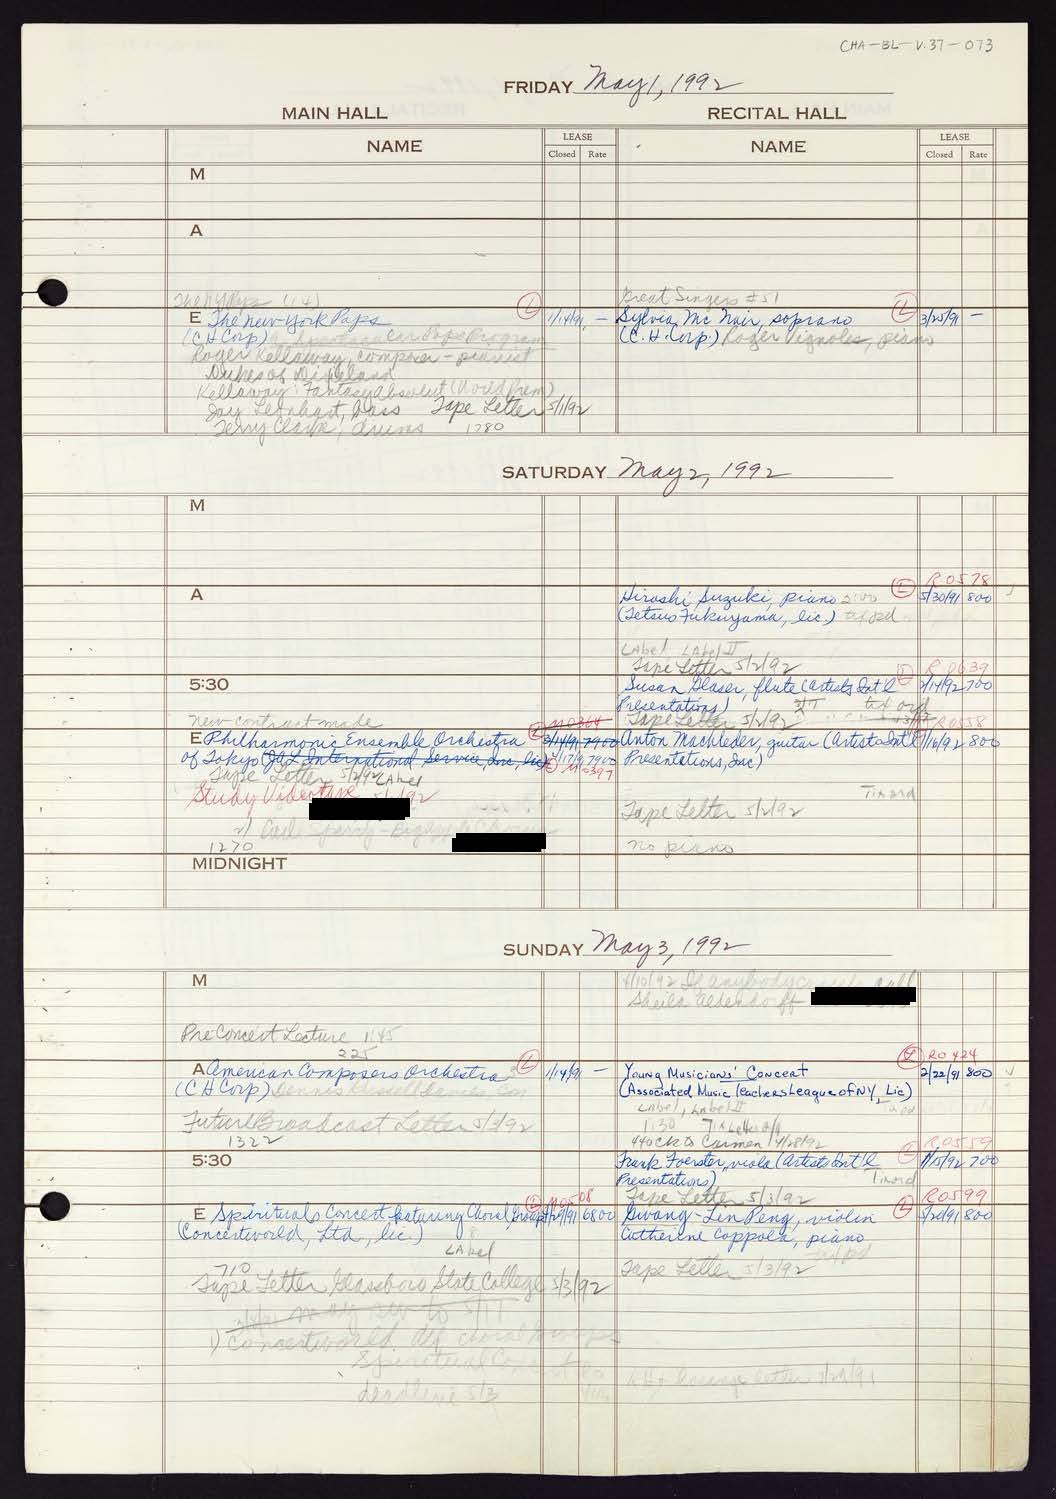 CHA-BL-V.37-073
FRIDAY May 1, 1992
MAIN HALL
RECITAL HALL
NAME
LEASE
Closed Rate
NAME
LEASE
Closed Rate
M
A
The NY Pops (14)
E The New York Pops 1/14/91 -
(CH Corp) Program
Roger Kellaway, composer-pianist
Dukes of Dixieland
Kellaway: Fantasy Absolut (World Prem)
Jay Leonhart, bass Tape Letter 5/1/92
Terry Clarke, drums 1280
Great Singers #51
L
Sylvia Mc Nair, soprano 3/25/91 -
(C.H. Corp.) Roger Vignoles, piano
SATURDAY May 2, 1992
M
A
R0578
Hiroshi Suzuki, piano 2:00 5/30/91 800
(Tetsuo Fukuyama, lic.)
Label Label II
Tape Letter 5/2/92
5:30
R0639
Susan Glaser, flute (Artists Int'l 2/14/92 700
Presentations) tix ord
Tape Letter 5/2/92
new contract made
M0364
E Philharmonic Ensemble Orchestra 3/14/91 7900
of Tokyo (J&L International Service, Inc, lic) 7900
M0397
Tape Letter 5/2/92 Label
Study Videotape 5/1/92
2)
1270
R0558
Anton Machleder, guitar (Artists Int'l 1/16/92 800
Presentations, Inc)
Tix ord
Tape Letter 5/2/92
no piano
MIDNIGHT
SUNDAY May 3, 1992
M
4/10/92 If anybody cancels call
Sheila Aldendorff
PreConcert Lecture 1:45
225
A American Composers Orchestra 1/14/91 -
(CH Corp) Dennis Russell Davies, con
Future Broadcast Letter 5/3/92
1322
R0424
Young Musicians' Concert 2/22/91 800
(Associated Music Teachers League of NY, Lic)
Label, Label II
1:30
Carmen 4/28/92
5:30
R0559
Frank Foerster, viola (Artists Int'l 1/15/92 700
Presentations) Tix ord
Tape Letter 5/3/92
M0508
E Spirituals Concert featuring Choral Groups 6800
(Concertworld, Ltd, lic.)
Label
710
Tape Letter Glassboro State College 5/3/92
to 5/17
1) Concertworld choral Groups
Spiritual Concert
deadline 5/3
R0599
Gwang-Lin Peng, violin 800
Catherine Coppola, piano
Tape Letter 5/3/92
letter